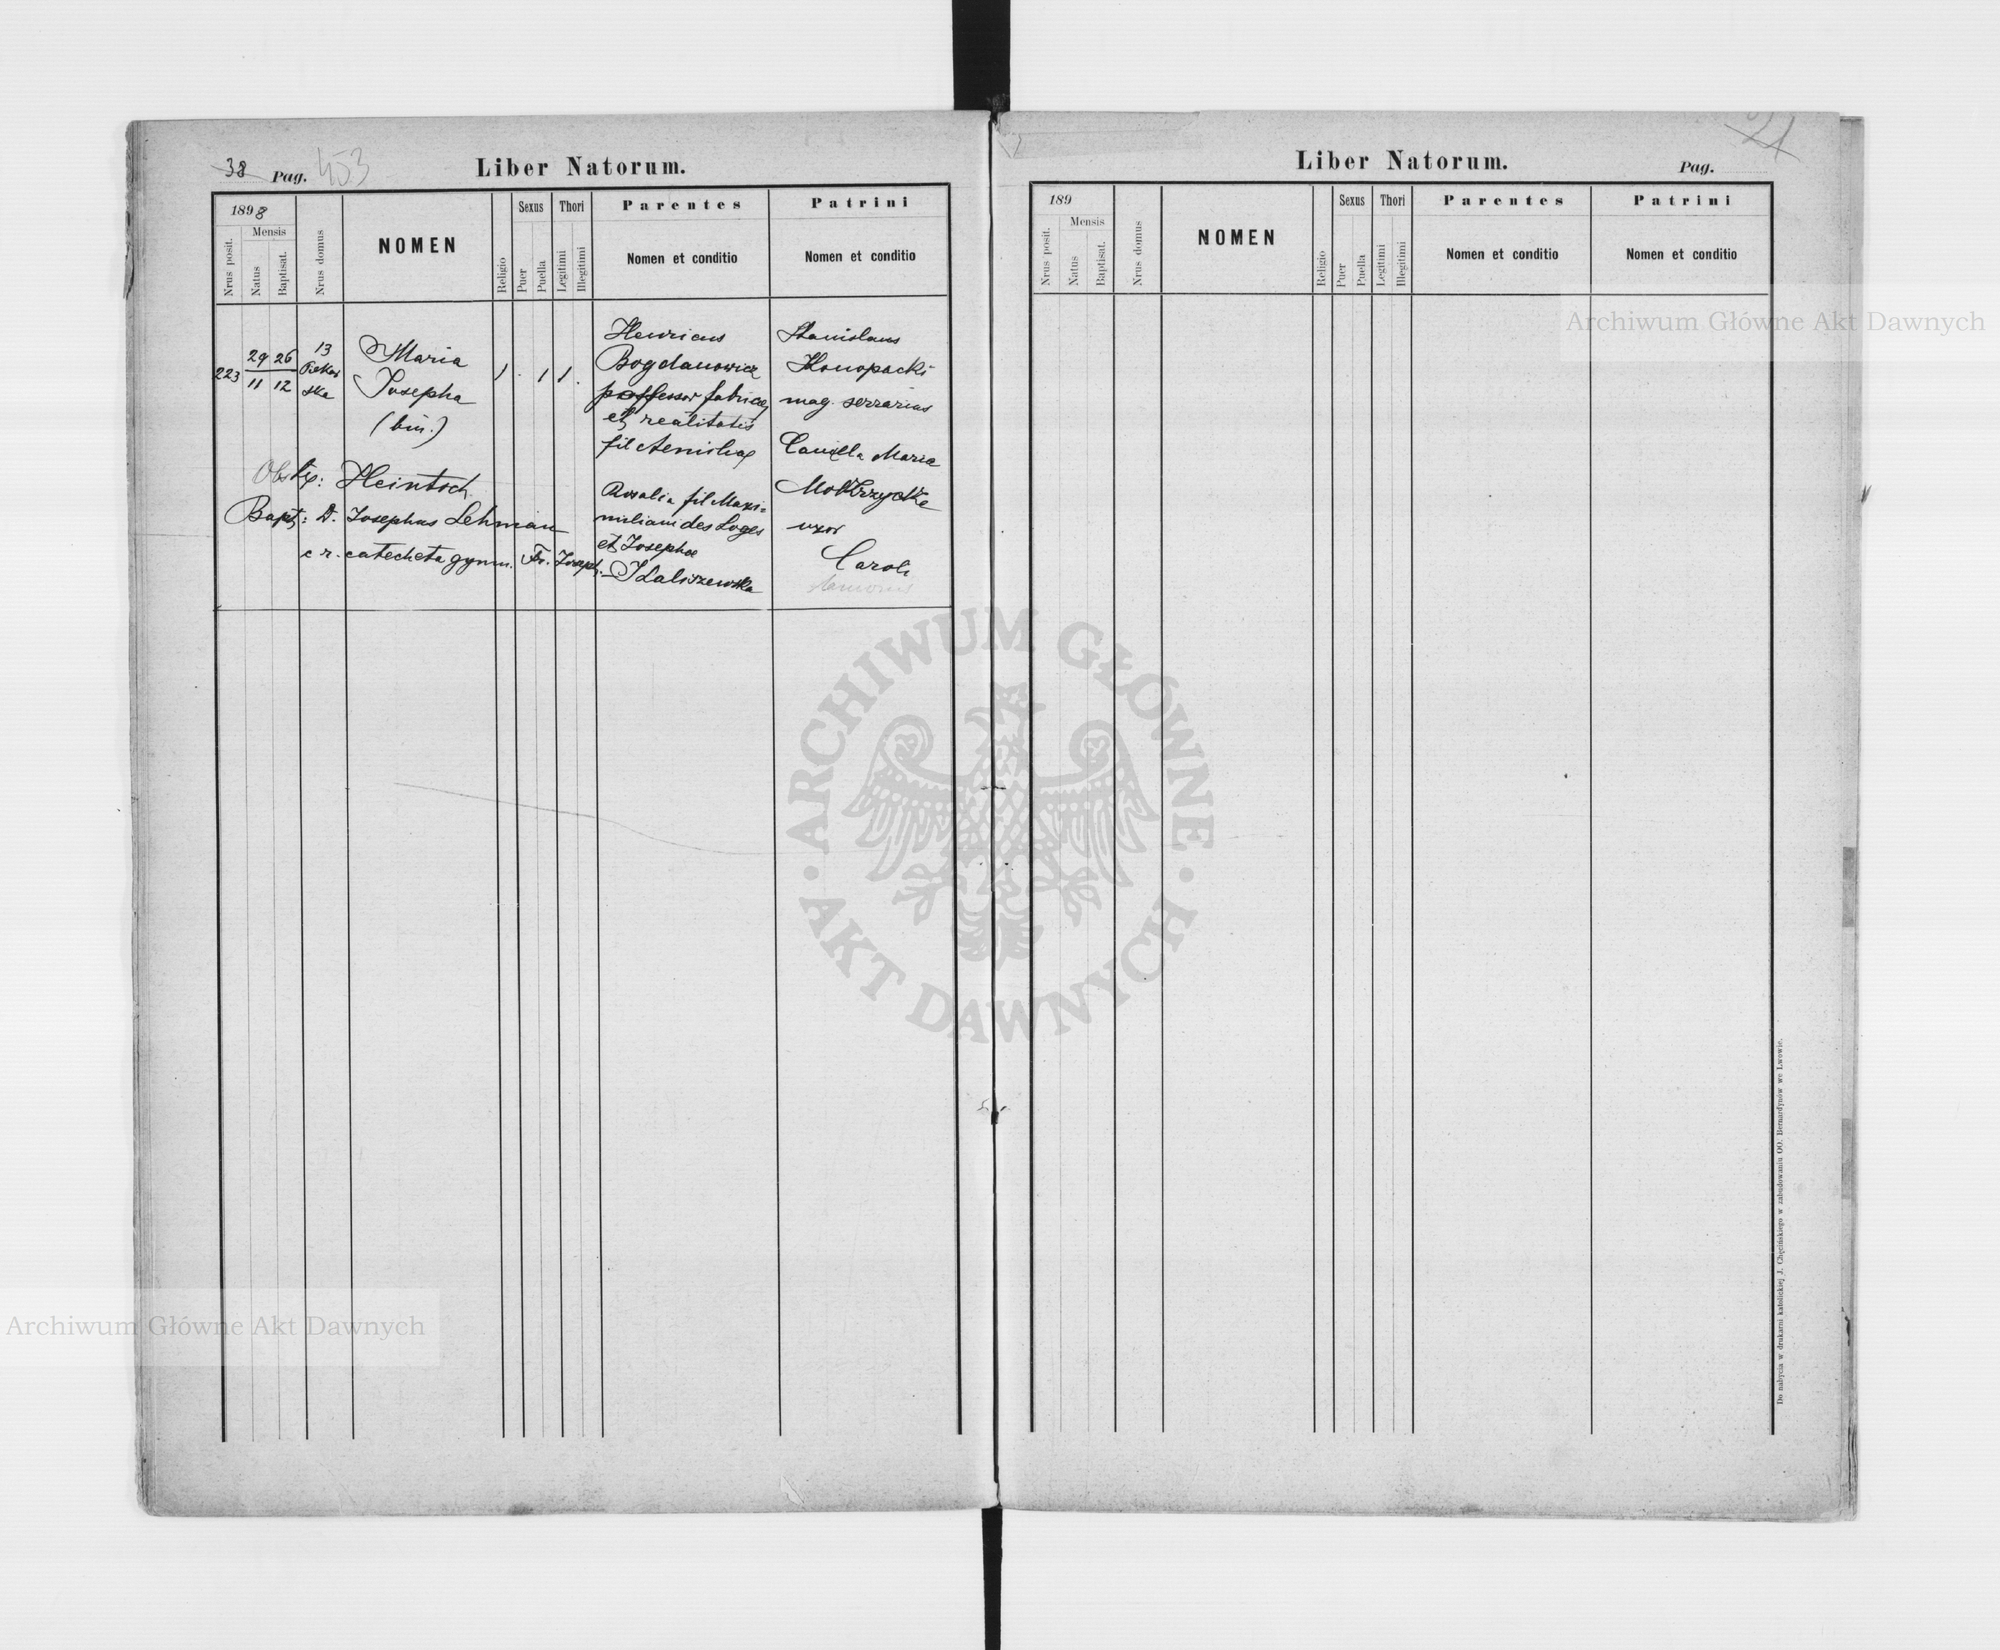 38 Pag. 453
Liber Natorum.
1898
Mensis
Nrus posit.
Natus
Baptisat.
Nrus domus
NOMEN
Religio
Sexus
Puer
Puella
Thori
Legitimi
Illegitimi
Parentes
Nomen et conditio
Patrini
Nomen et conditio
223
29 26
11 12
13
ska
Maria
Josepha
(bin.)
1 . 1 1 .
Henricus
Bogdanowicz
possessor fabricae
et realitatis
fil
Rosalia fil Maxi-
miliani des Loges
et Josephae
Kaliszewska
Stanislaus
Konopacki
mag. serrarius
Camilla Maria
Mokrzycka
uxor
Caroli
Obstetx: Heintsch
Bapt: D. Josephus Lehman
c r. catecheta gymn. Fr. Joseph.
21
Liber Natorum.
Pag.
189
Mensis
Nrus posit.
Natus
Baptisat.
Nrus domus
NOMEN
Religio
Sexus
Puer
Puella
Thori
Legitimi
Illegitimi
Parentes
Nomen et conditio
Patrini
Nomen et conditio
Do nabycia w drukarni katolickiej J. Chęcińskiego w zabudowaniu OO. Bernardynów we Lwowie.
Archiwum Główne Akt Dawnych
ARCHIWUM GŁÓWNE · AKT DAWNYCH ·
Archiwum Główne Akt Dawnych